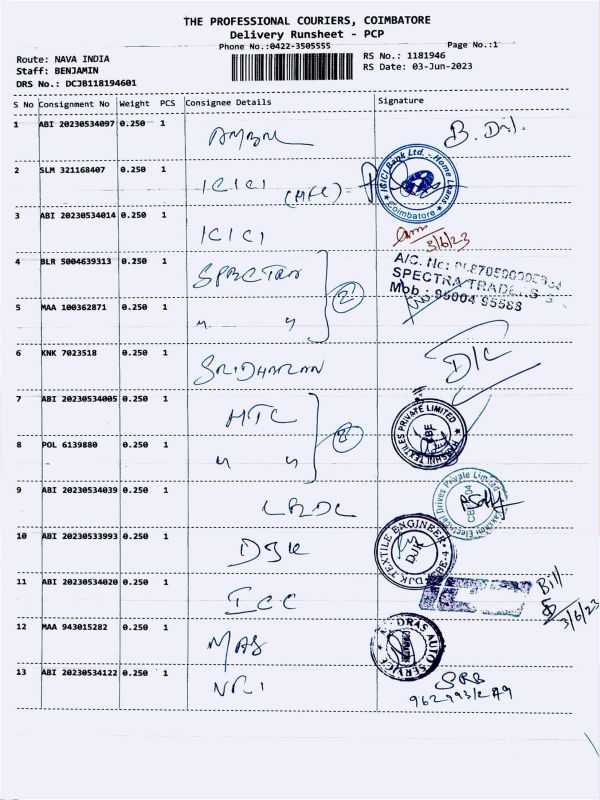 THE PROFESSIONAL COURIERS, COIMBATORE
Delivery Runsheet - PCP
Phone No.:0422-3505555 Page No.:1
Route: NAVA INDIA RS No.: 1181946
Staff: BENJAMIN RS Date: 03-Jun-2023
DRS No.: DCJB118194601
S No Consignment No Weight PCS Consignee Details Signature
1 ABI 20230534097 0.250 1
2 SLM 321168407 0.250 1 ICICI (HFC) ICICI Bank Ltd. - Home Loans Coimbatore
3 ABI 20230534014 0.250 1 ICICI 3/6/23
4 BLR 5004639313 0.250 1 SPECTRA 2 A/C. No:
SPECTRA TRADERS
Mob : 95004 95588
5 MAA 100362871 0.250 1 " "
6 KNK 7023518 0.250 1 SRIDHARAN D/C
7 ABI 20230534005 0.250 1 HTC TEXTILES PRIVATE LIMITED
8 POL 6139880 0.250 1 " "
9 ABI 20230534039 0.250 1 Lakshmi Electrical Drives Private Limited
10 ABI 20230533993 0.250 1 DJK DJK TEXTILE ENGINEER DJK CBE-4
11 ABI 20230534020 0.250 1 ICC Bill
3/6/23
12 MAA 943015282 0.250 1 MAS MADRAS AUTO SERVICE
13 ABI 20230534122 0.250 1 NRI SRS